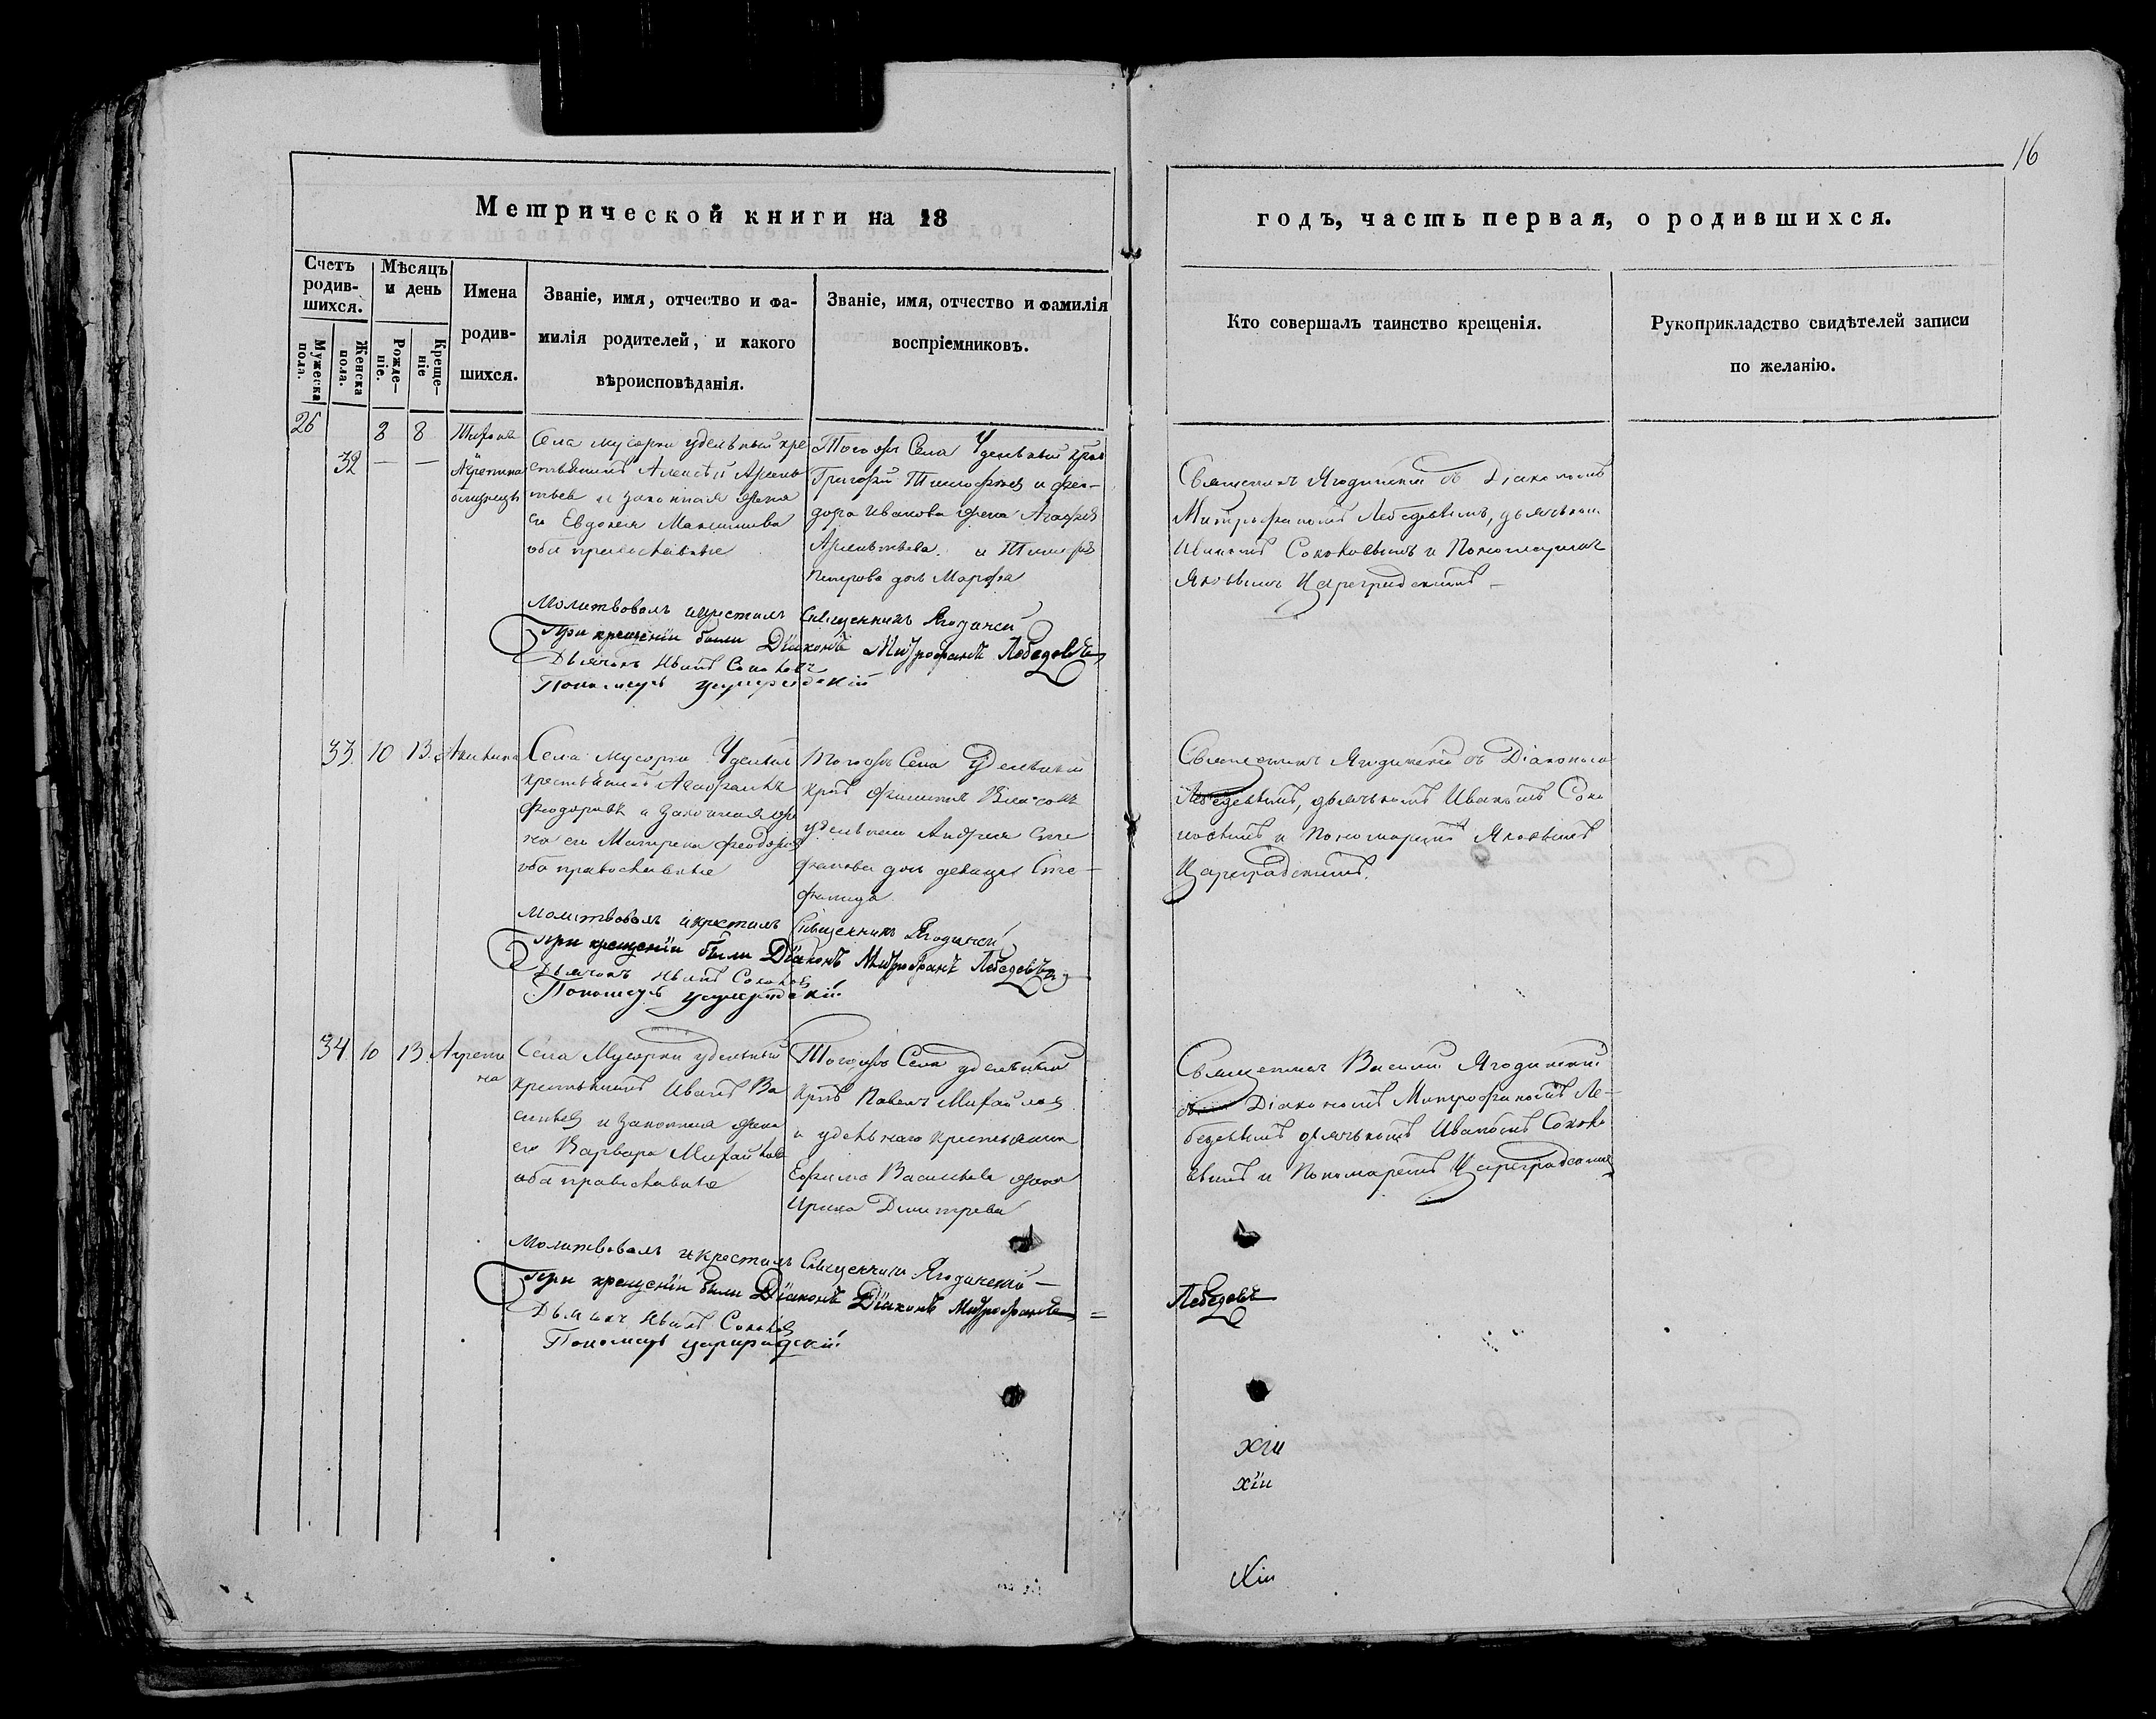 16
Метрической книги на 18
годъ, часть первая, о родившихся.
Счетъ родив-шихся.
Мужеска пола.
Женска пола.
Мѣсяцъ и день
Рожде-ніе.
Креще-ніе
Имена родив-шихся.
Званіе, имя, отчество и фа-
милія родителей, и какого
вѣроисповѣданія.
Званіе, имя, отчество и фамилія
воспріемниковъ.
Кто совершалъ таинство крещенія.
Рукоприкладство свидѣтелей записи
по желанію.
26
8 8
32 — —
Агрепина
близнецы
Села мусорки удельный кре
стьянинъ Алексѣй Арень
тьев и законная жена
его Евдокея Максимова
оба православные
Тогожъ Села Удельный крт
Григорій Тимофѣев и фео-
дора Иванова жена Агафья
и Тимофея
Петрова дочь Марфа
Священникъ Ягодинскій съ Діакономъ
Митрофаномъ Лебедевымъ, дьячькомъ
Иваномъ Соколовымъ и Пономаремъ
Яковымъ Цареградскимъ
Молитвовалъ и крестилъ Священникъ Ягодинскій
При крещеніи были Діаконъ Митрофанъ Лебедевъ
Дьячокъ Иванъ Соколовъ
Пономарь Цареградскій
33 10 13 Акилина
Села мусорки Удельный
крестьянинъ
Феодоровъ и законная же
на его Матрена Феодорова
оба православные
Тогожъ Села Удельный
крт Филиппъ Власовъ
удельнаго Андрея Сте
фанова дочь девица Сте-
фанида
Священникъ Ягодинскій съ Діакономъ
Лебедевымъ, дьячькомъ Иваномъ Соко
ловымъ и Пономаремъ Яковымъ
Цареградскимъ.
Молитвовалъ и крестилъ Священникъ Ягодинскій
При крещеніи были Діаконъ Митрофанъ Лебедевъ
Дьячокъ Иванъ Соколовъ
Пономарь Цареградскій
34 10 13 Агрепи
на
Села Мусорки удельный
крестьянинъ Иванъ Ва
сильев и законная жена
его Варвара Михайлова
оба православные
Тогожъ Села удельный
крть Павелъ Михайлов
и удельнаго крестьянина
Ефима Васильева жена
Ирина Димитрева
Священникъ Василій Ягодинскій
съ Діакономъ Митрофаномъ Ле-
бедевымъ дьячькомъ Иваномъ Соколо
вымъ и Пономаремъ Цареградскимъ
Молитвовалъ и крестилъ Священникъ Ягодинскій
При крещеніи были Діаконъ Діаконъ Митрофанъ =
Лебедевъ
Дьячокъ Иванъ Соколовъ
Пономарь Цареградскій